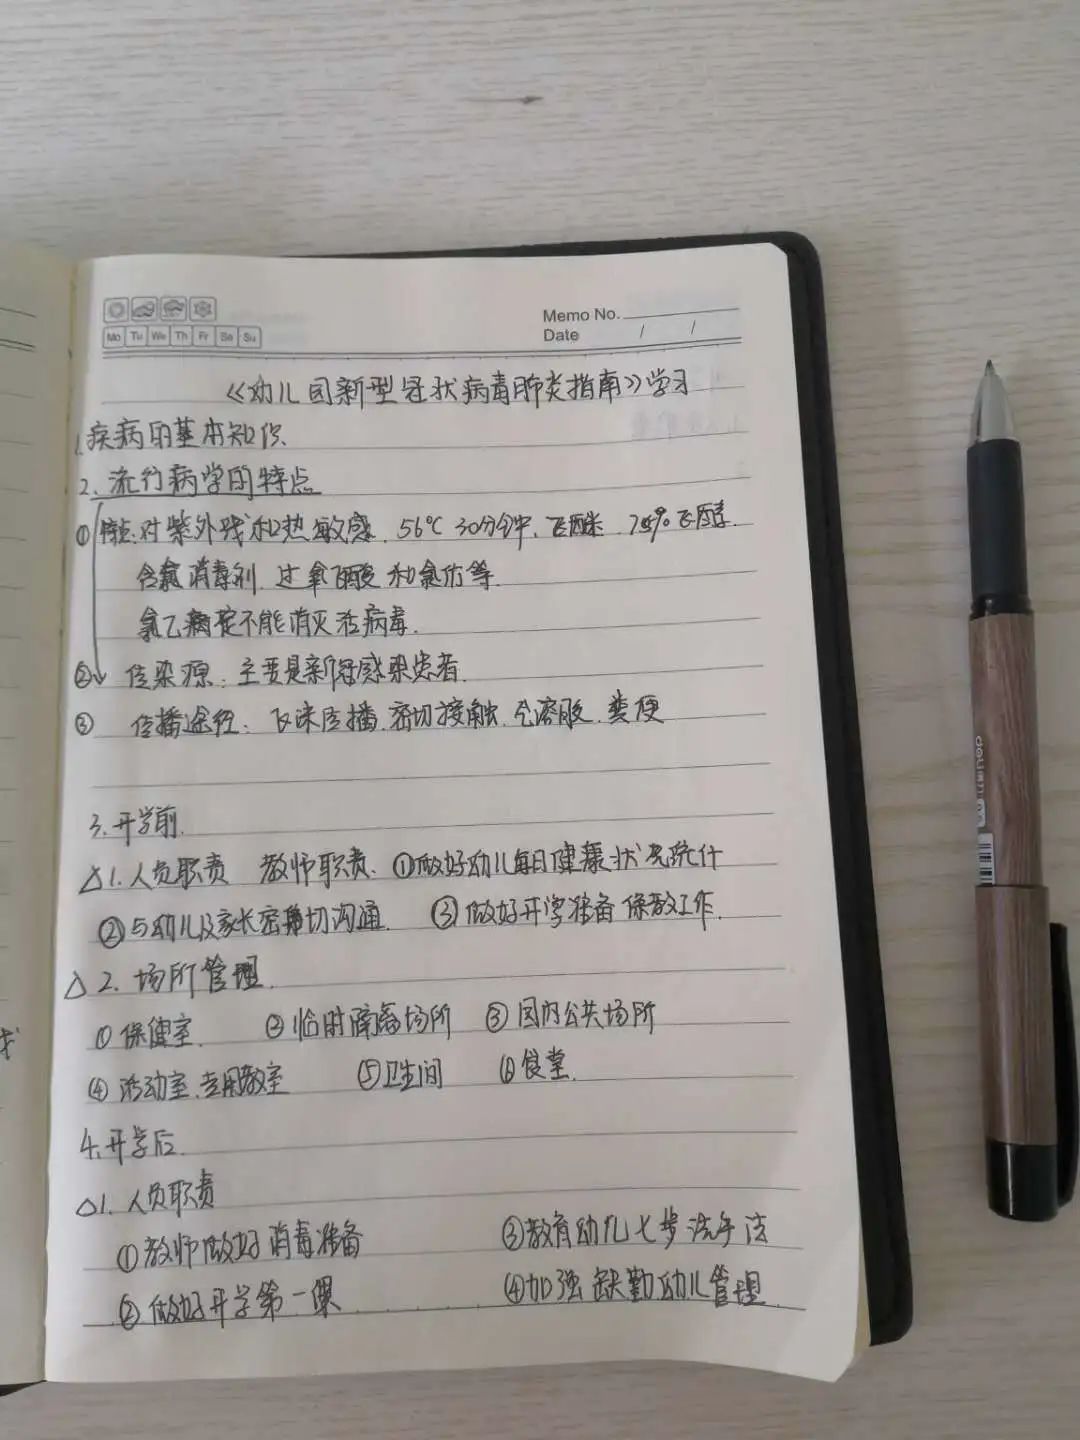 Mo Tu We Th Fr Sa Su
Memo No.
Date / /
《幼儿园新型冠状病毒肺炎指南》学习
1.疾病的基本知识.
2.流行病学的特点
①特点:对紫外线和热敏感.56℃ 30分钟、乙醚.75%乙醇.
含氯消毒剂.过氧乙酸和氯仿等.
氯乙定不能消灭活病毒.
② 传染源:主要是新冠感染患者.
③ 传播途径:飞沫传播.密切接触.气溶胶.粪便
3.开学前.
△1.人员职责 教师职责.①做好幼儿每日健康状况统计
②与幼儿及家长密切沟通. ③做好开学准备保教工作.
△2.场所管理.
①保健室. ②临时隔离场所 ③园内公共场所
④活动室.专用教室 ⑤卫生间 ⑥食堂.
4.开学后.
△1.人员职责
①教师做好消毒准备 ③教育幼儿七步洗手法
②做好开学第一课 ④加强缺勤幼儿管理
deli